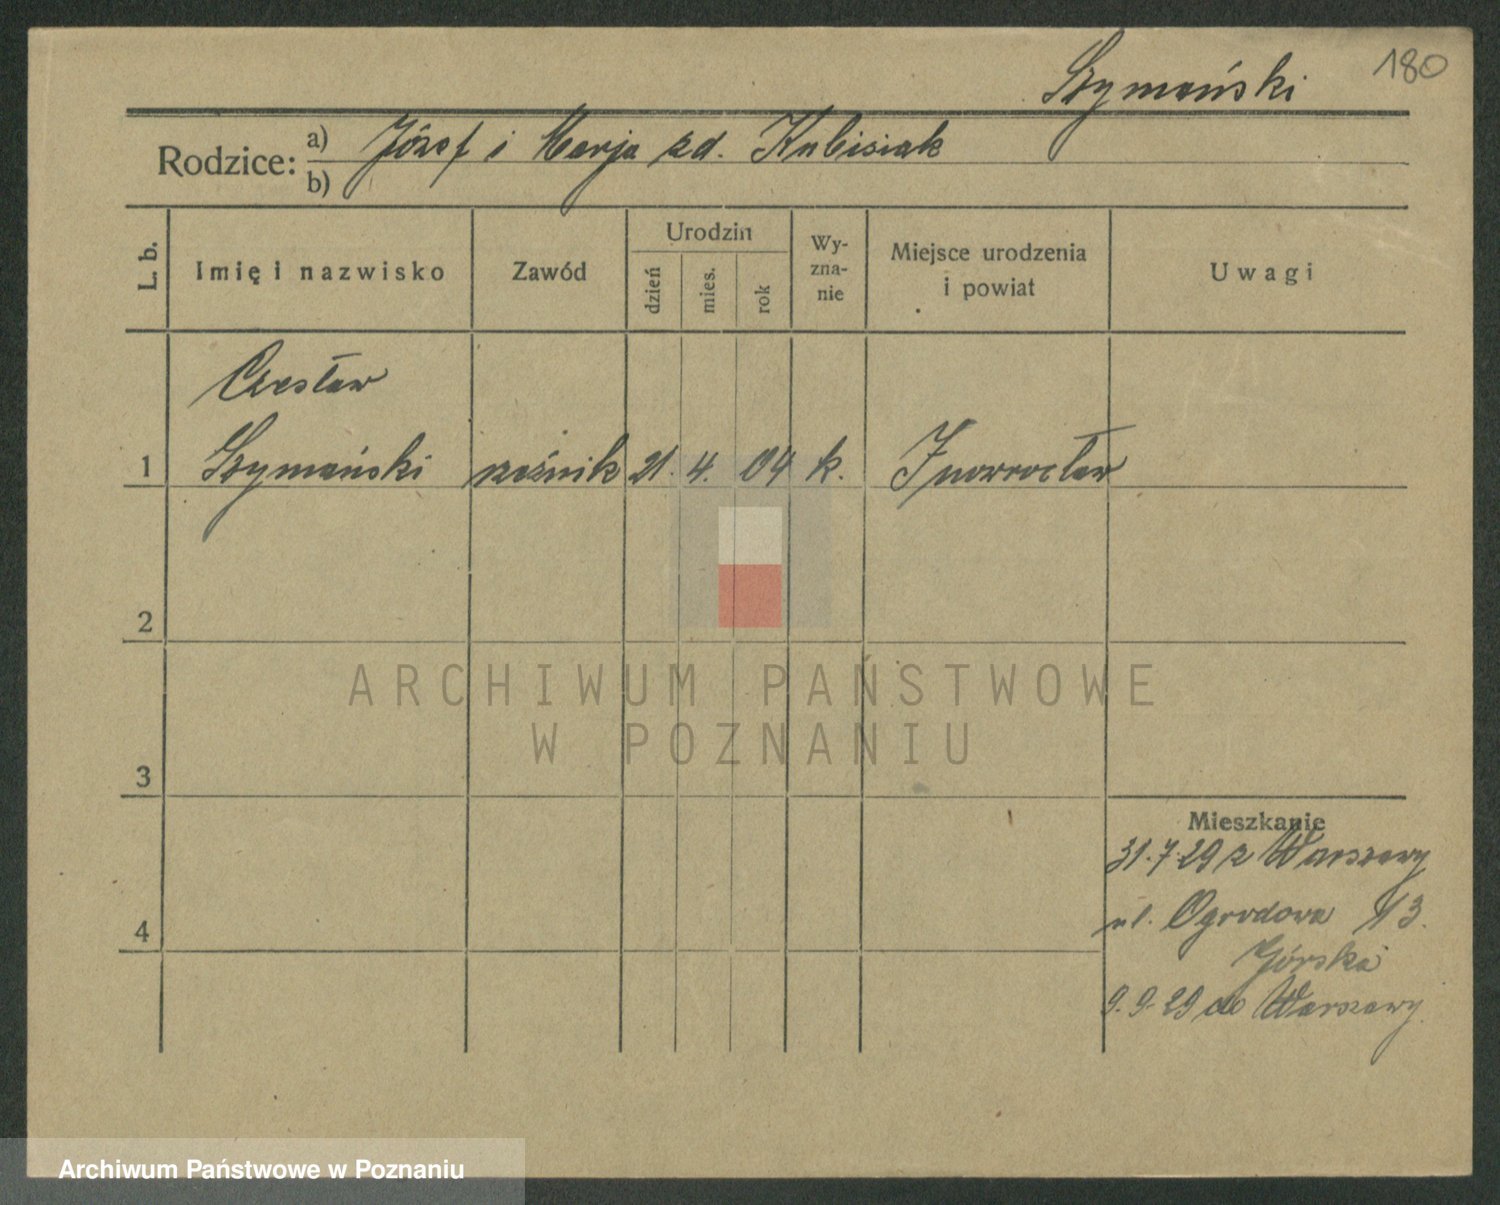 Szymański 180
Rodzice: a) Józef i Marja zd. Kubisiak
b)
L. b. Imię i nazwisko Zawód Urodzin dzień mies. rok Wy-zna-nie Miejsce urodzenia i powiat Uwagi
Czesław
1 Szymański rzeźnik 21. 4. 04 k. Inowrocław
2
ARCHIWUM PAŃSTWOWE
W POZNANIU
3
Mieszkanie
31.7.29 z Warszawy
ul. Ogrodowa 13.
4
Górska
9.9.29 do Warszawy
Archiwum Państwowe w Poznaniu